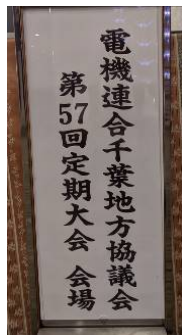 電機連合千葉地方協議会
第57回定期大会 会場